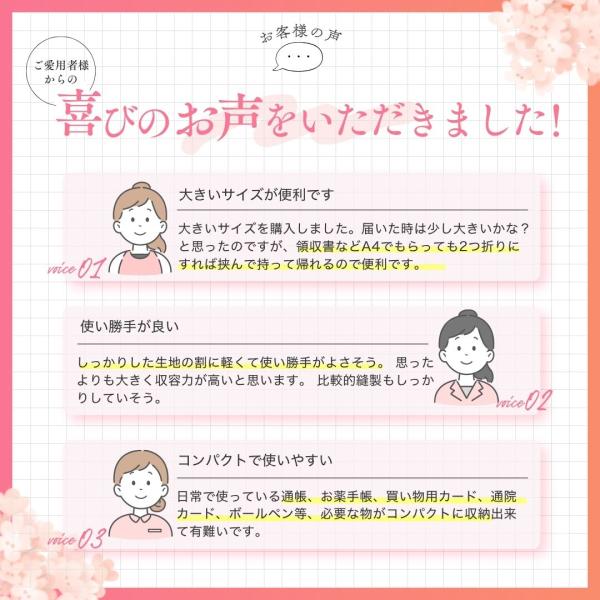 お客様の声
ご愛用者様
からの
喜びのお声をいただきました!
大きいサイズが便利です
大きいサイズを購入しました。届いた時は少し大きいかな?
と思ったのですが、領収書などA4でもらっても2つ折りに
すれば挟んで持って帰れるので便利です。
voice01
使い勝手が良い
しっかりした生地の割に軽くて使い勝手がよさそう。 思った
よりも大きく収容力が高いと思います。 比較的縫製もしっか
りしていそう。
voice02
コンパクトで使いやすい
日常で使っている通帳、お薬手帳、買い物用カード、通院
カード、ボールペン等、必要な物がコンパクトに収納出来
て有難いです。
voice03